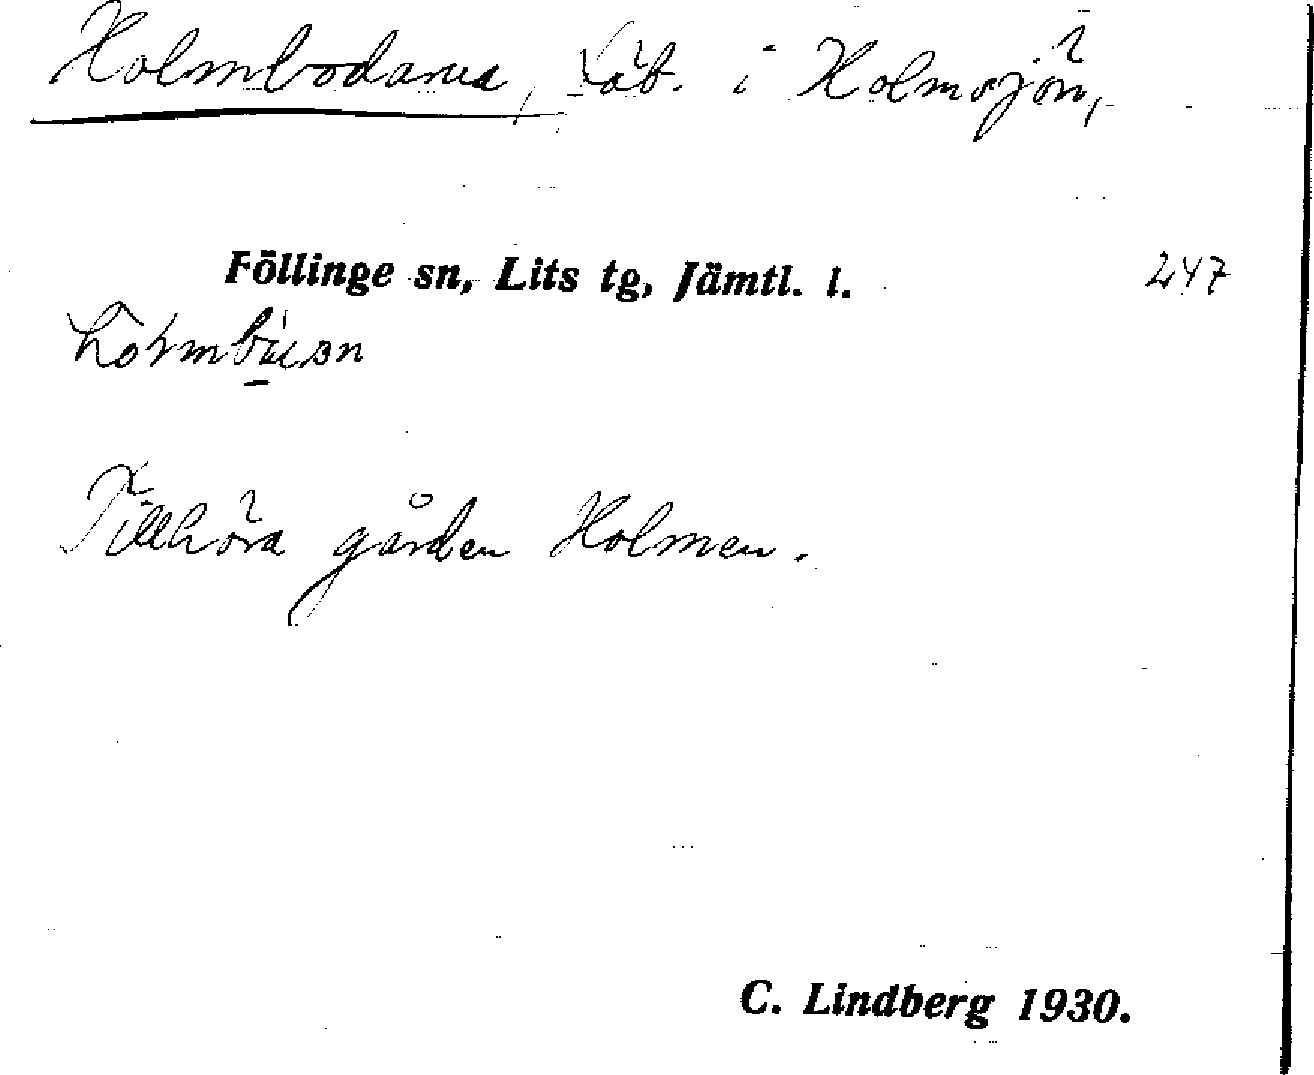 Holmbodarna, Fäb. i Holmsjön,
Föllinge sn, Lits tg, Jämtl. l. 247
Tillhöra gården Holmen.
C. Lindberg 1930.